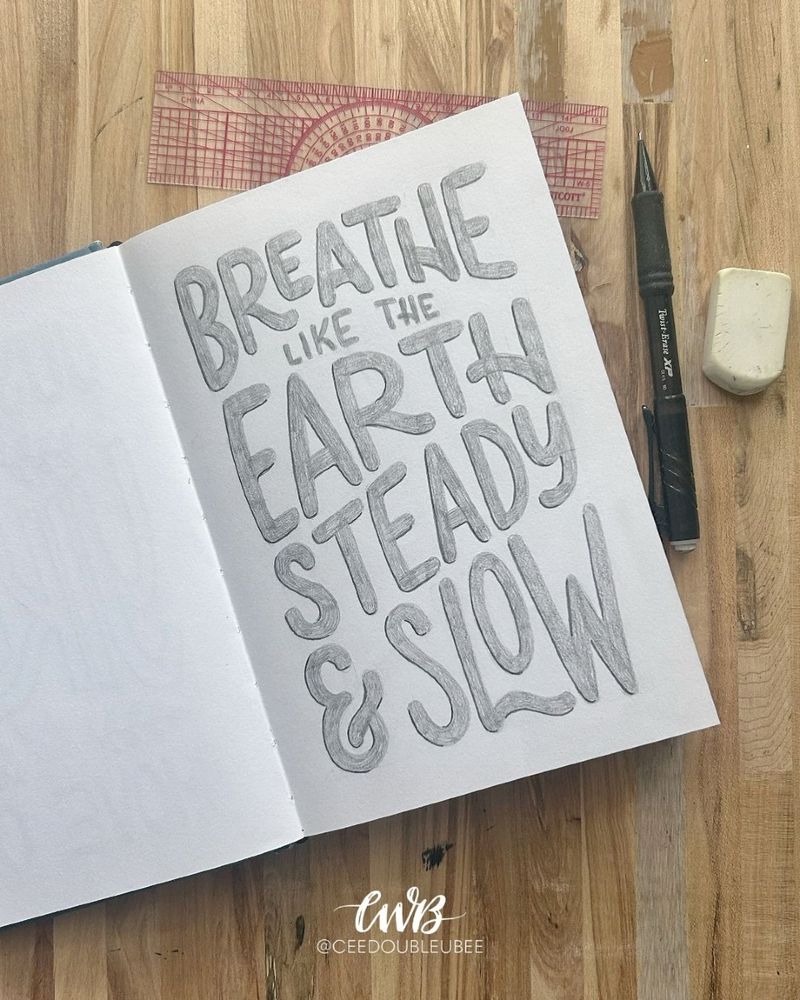 CHINA
JOOJ
W-6
STCOTT
BREATHE
LIKE THE
EARTH
STEADY
& SLOW
Twist-Erase XP
CWB
@CEEDOUBLEUBEE